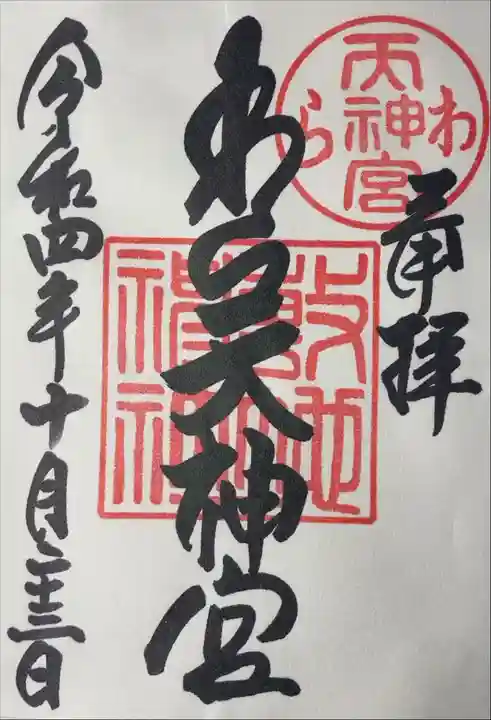 天神宮
わら
奉拝
わら天神宮
令和四年十月二十三日